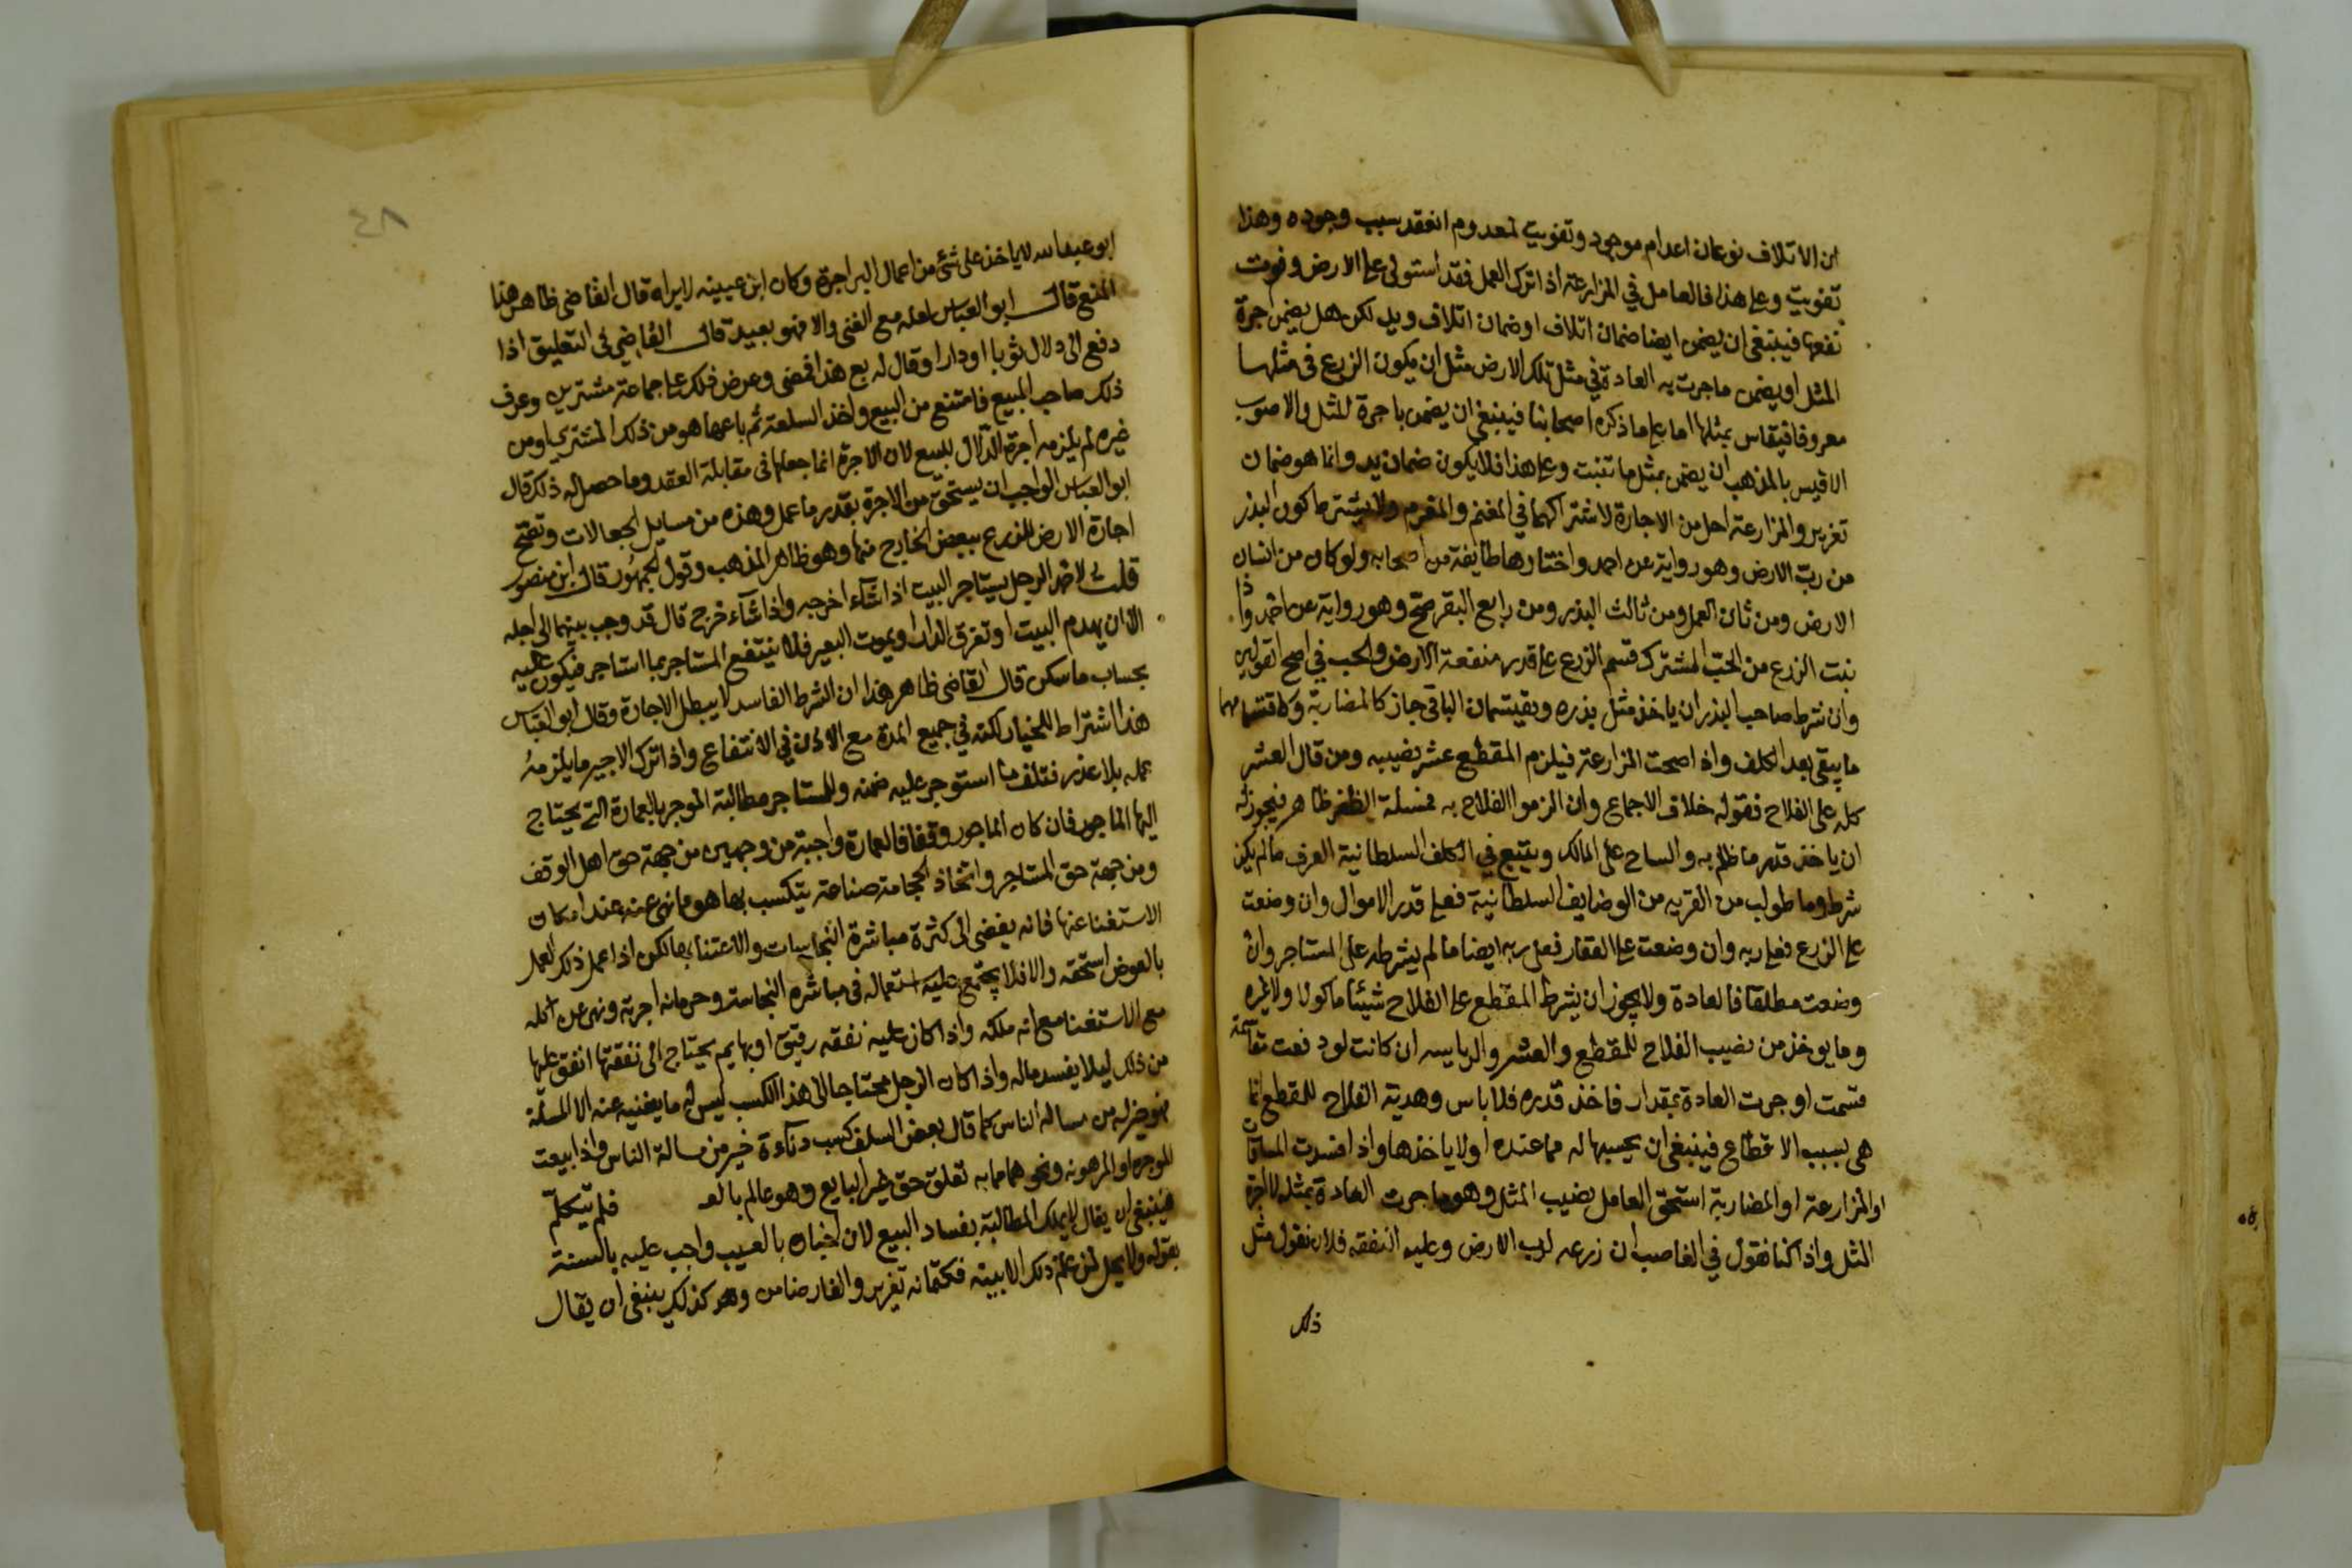 لان الاتلاف نوعان اعدام موجود وتفويت لمعدوم انعقد سبب وجوده وهذا
تفويت وعلى هذا فالعامل في المزارعة اذا ترك العمل فقد استولى على الارض وفوت
نفعها فينبغي ان يضمن ايضا ضمان اتلاف او ضمان اتلاف ويد لكن هل يضمن اجرة
المثل او يضمن ما جرت به العادة في مثل تلك الارض مثل ان يكون الزرع في مثلها
معروفا فيقاس بمثلها اما على ما ذكره اصحابنا فينبغي ان يضمن باجرة المثل والاصوب
الاقيس بالمذهب ان يضمن بمثل ما تنبت وعلى هذا فلا يكون ضمان يد وانما هو ضمان
تغرير والمزارعة احل من الاجارة لاشتراكهما في المغنم والمغرم ولا يشترط كون البذر
من رب الارض وهو رواية عن احمد واختارها طايفة من اصحابه ولو كان من انسان
الارض ومن ثان العمل ومن ثالث البذر ومن رابع البقر صح وهو رواية عن احمد واذا
نبت الزرع من الحب المشترك قسم الزرع على قدر منفعة الارض والحب في اصح القولين
وان شرط صاحب البذر ان ياخذ مثل بذره ويقتسمان الباقي جاز كالمضاربة وكاقتسامهما
ما يبقى بعد الكلف واذا صحت المزارعة فيلزم المقطع عشر نصيبه ومن قال العشر
كله على الفلاح فقوله خلاف الاجماع وان الزموا الفلاح به فمسئلة الظفر ظاهر فيجوز له
ان ياخذ قدر ما ظلم به والساح على المالك ويتبع في الكلف السلطانية العرف ما لم يكن
شرط وما طولب من القريه من الوضايف السلطانية فعلى قدر الاموال وان وضعت
على الزرع فعلى ربه وان وضعت على العقار فعلى ربه ايضا ما لم يشرطه على المستاجر وان
وضعت مطلقا فالعادة ولا يجوز ان يشرط المقطع على الفلاح شيئا ماكولا ولا غيره
وما يوخذ من نصيب الفلاح للمقطع والعشر والرياسه ان كانت لو دفعت
قسمت او جرت العادة بمقدار فاخذ قدره فلا باس وهدية الفلاح للمقطع انما
هي بسبب الاقطاع فينبغي ان يحسبها له مما عنده او لا ياخذها واذا فسدت المساقاة
او المزارعة او المضاربة استحق العامل نصيب المثل وهو ما جرت العادة بمثله لا اجرة
المثل واذا كنا نقول في الغاصب ان زرعه لرب الارض وعليه النفقه فلان نقول مثل
ذلك
٤٨
ابو عبد الله لا ياخذ على شئ من اعمال البر اجرة وكان ابن عيينه لا يراه قال القاضي ظاهر هذا
المنع قال ابو العباس لعله مع الغنى والا فهو بعيد قال القاضي في التعليق اذا
دفع الى دلال ثوبا او دارا وقال له بع هذا فمضى وعرض ذلك على جماعة مشترين وعرف
ذلك صاحب المبيع فامتنع من البيع واخذ السلعة ثم باعها هو من ذلك المشتري او من
غيره لم يلزمه اجرة الدلال للبيع لان الاجرة انما جعلها في مقابلة العقد وما حصل له ذلك قال
ابو العباس الواجب ان يستحق من الاجرة بقدر ما عمل وهذه من مسايل الجعالات وتصح
اجارة الارض للزرع ببعض الخارج منها وهو ظاهر المذهب وقول الجمهور قال ابن منصور
قلت لاحمد الرجل يستاجر البيت اذا شاء اخرجه واذا شاء خرج قال قد وجب بينهما الى اجله
الا ان يهدم البيت او تغرق الدار او يموت البعير فلا ينتفع المستاجر بما استاجر فيكون عليه
بحساب ما سكن قال القاضي ظاهر هذا ان الشرط الفاسد لا يبطل الاجارة وقال ابو العباس
هذا اشتراط للخيار لكنه في جميع المدة مع الاذن في الانتفاع واذا ترك الاجير ما يلزمه
عمله بلا عذر فتلف ما استوجر عليه ضمنه وللمستاجر مطالبة الموجر بالعمارة التي يحتاج
اليها الماجور فان كان الماجور وقفا فالعمارة واجبة من وجهين من جهة حق اهل الوقف
ومن جهة حق المستاجر واتخاذ الحجامة صناعة يتكسب بها هو ما نهي عنه عند امكان
الاستغنا عنها فانه يفضي الى كثرة مباشرة النجاسات والاعتناء بها لكن اذا عمل ذلك العمل
بالعوض استحقه والا فلا يجتمع عليه استعماله في مباشره النجاسة وحرمانه اجرته ونهي عن اكله
مع الاستغنا مع انه ملكه واذا كان عليه نفقه رقيق او بهايم يحتاج الى نفقتها انفق عليها
من ذلك ليلا يفسد ماله واذا كان الرجل محتاجا الى هذا الكسب ليس له ما يغنيه عنه الا المسلة
فهو خير له من مسالة الناس كما قال بعض السلف كسب دناءة خير من مسالة الناس واذا بيعت
الموجرة او المرهونه ونحوهما مما به تعلق حق غير البايع وهو عالم بالعـ فلم يتكلم
فينبغي ان يقال لا يملك المطالبة بفساد البيع لان اخباره بالعيب واجب عليه بالسنة
بقوله ولا يحل لمن علم ذلك الا بينه فكتمانه تغرير والغار ضامن وهو كذلك ينبغي ان يقال